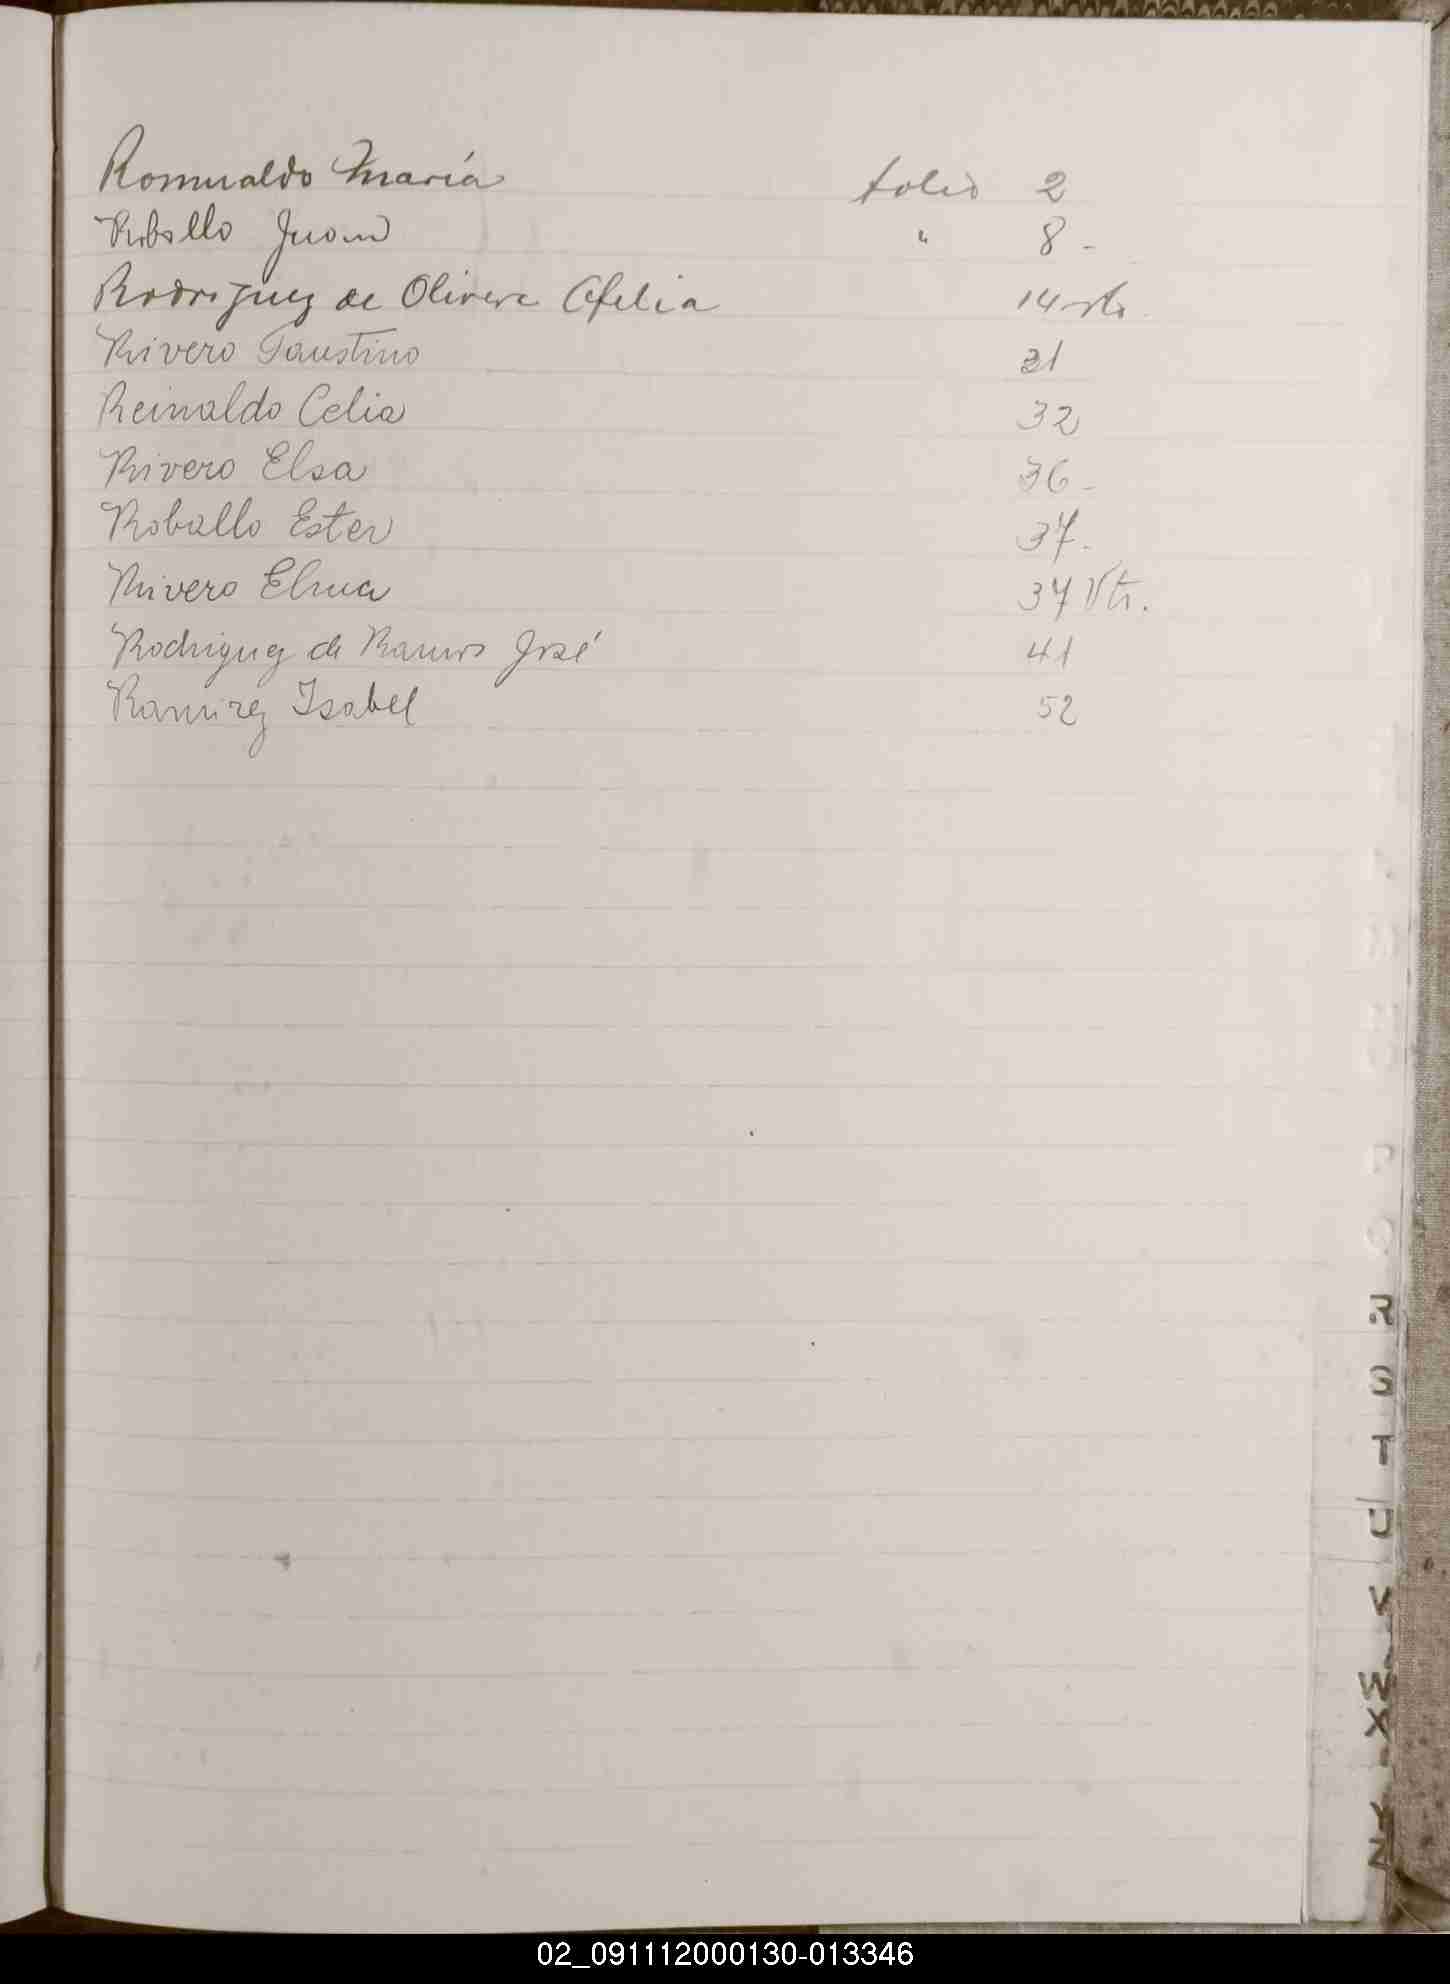 Romualdo María folio 2
Roballo Juan " 8 -
Rodriguez de Olivera Ofelia 14 vto
Rivero Faustino 21
Reinaldo Celia 32
Rivero Elsa 36 -
Roballo Ester 37 -
Rivero Elma 37 Vto.
Rodriguez de Ramos José 41
Ramirez Isabel 52
P
Q
R
S
T
U
V
W
X
Y
Z
02_091112000130-013346